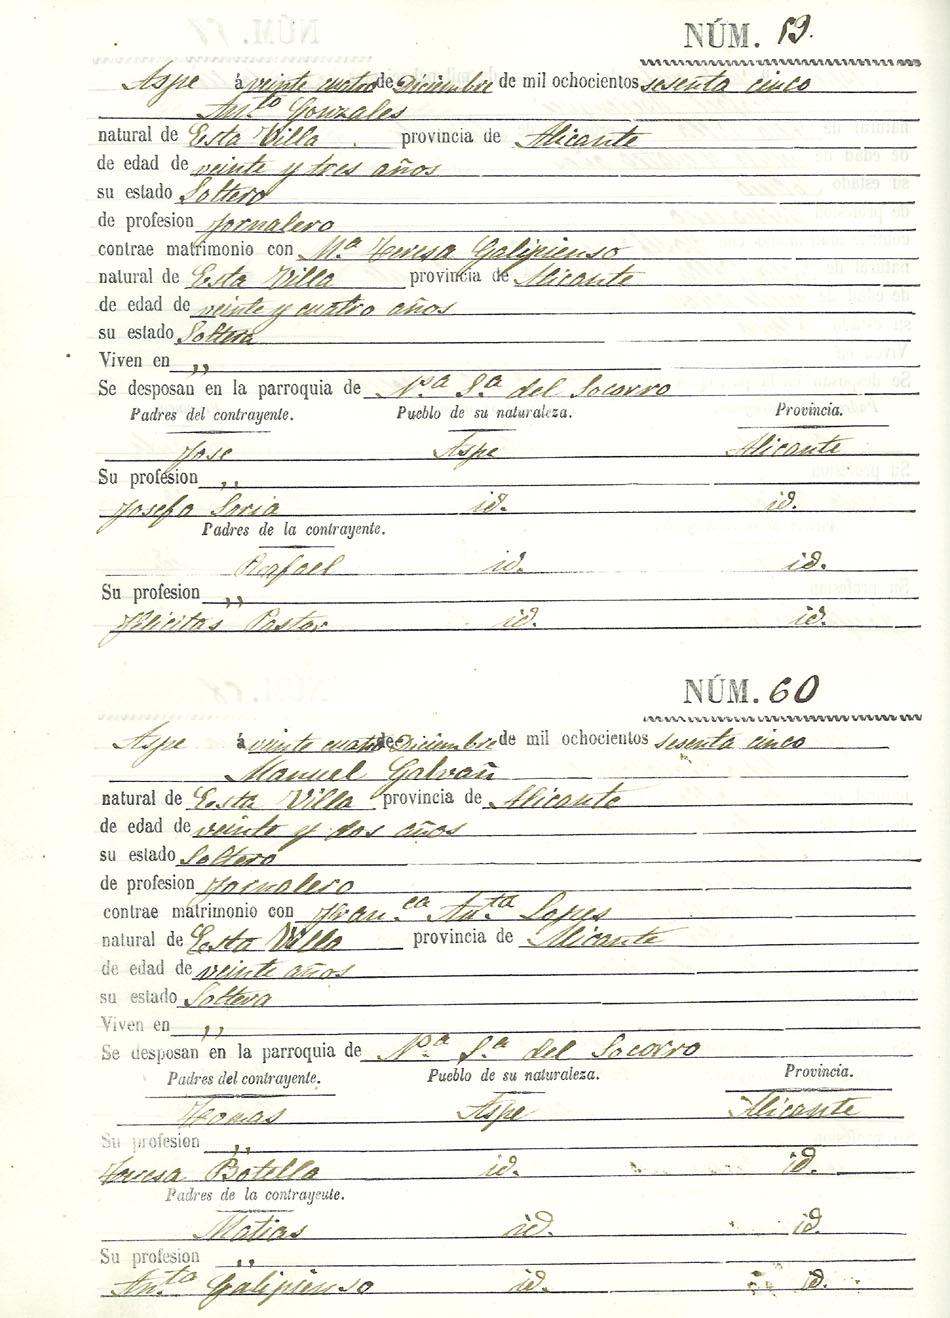 NÚM. 59.
Aspe á veinte cuatro de Diciembre de mil ochocientos sesenta cinco
An.to Gonzales
natural de Esta Villa provincia de Alicante
de edad de veinte y tres años
su estado Soltero
de profesion Jornalero
contrae matrimonio con M.a Teresa Galipienso
natural de Esta Villa provincia de Alicante
de edad de veinte y cuatro años
su estado Soltera
Viven en ,,
Se desposan en la parroquia de N.a S.a del Socorro
Padres del contrayente. Pueblo de su naturaleza. Provincia.
Jose Aspe Alicante
Su profesion ,,
Josefa Soria id. id.
Padres de la contrayente.
Rafael id. id.
Su profesion ,,
Felicitas Pastor id. id.
NÚM. 60
Aspe á veinte cuatro de Diciembre de mil ochocientos sesenta cinco
Manuel Galvañ
natural de Esta Villa provincia de Alicante
de edad de veinte y dos años
su estado Soltero
de profesion Jornalero
contrae matrimonio con Fran.ca Ant.a Lopes
natural de Esta Villa provincia de Alicante
de edad de veinte años
su estado Soltera
Viven en ,,
Se desposan en la parroquia de N.a S.a del Socorro
Padres del contrayente. Pueblo de su naturaleza. Provincia.
Tomas Aspe Alicante
Su profesion ,,
Teresa Botella id. id.
Padres de la contrayente.
Matias id. id.
Su profesion ,,
An.ta Galipienso id. id.